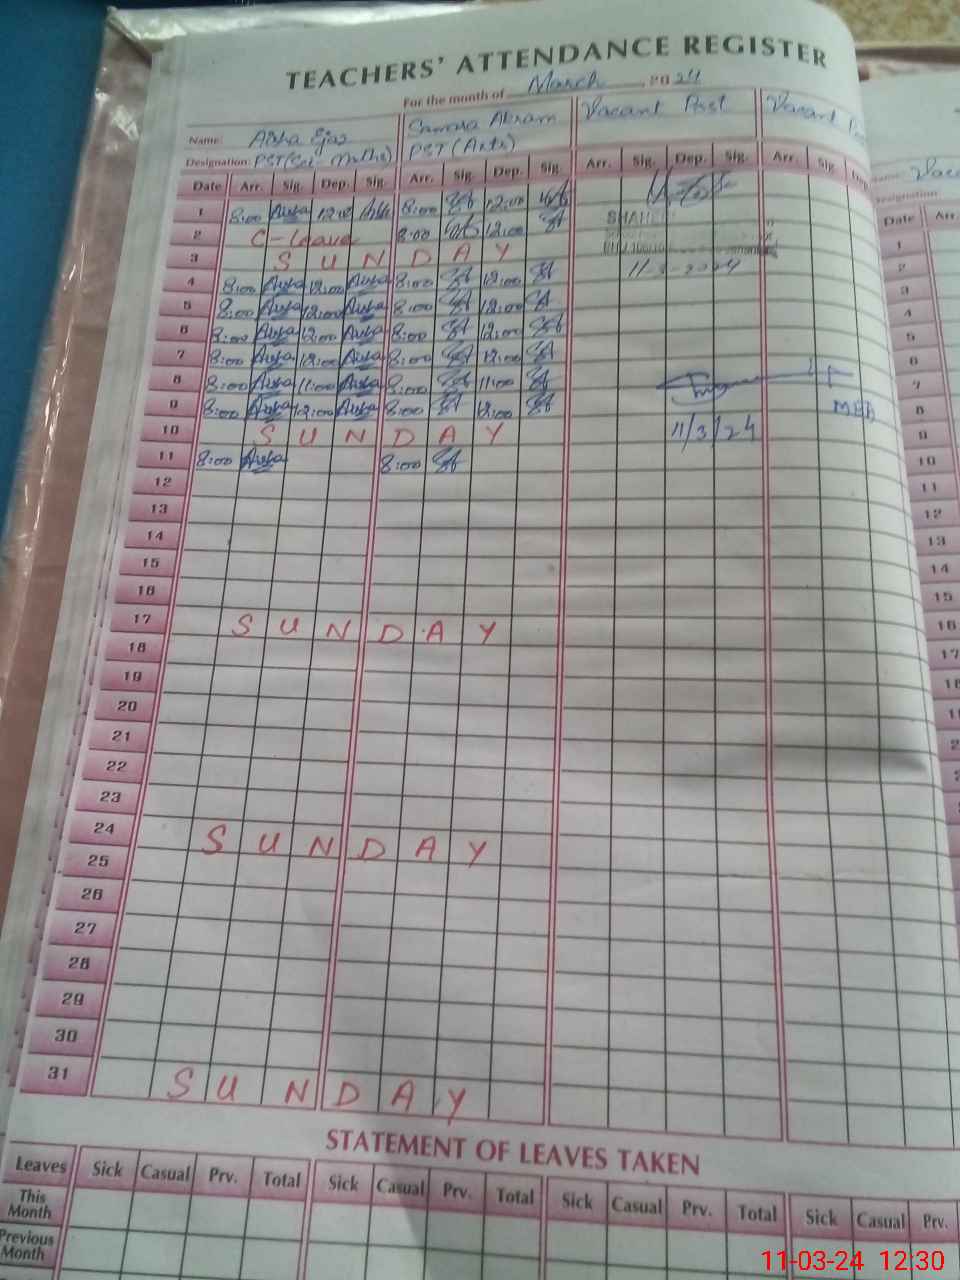 TEACHERS' ATTENDANCE REGISTER
For the month of March 2024
Name: Aisha Ejaz Samara Akram Vacant Post Vacant
Designation: PST (Sci Maths) PST (Arts)
Date Arr. Sig. Dep. Sig. Arr. Sig. Dep. Sig. Arr. Sig. Dep. Sig. Arr. Sig. Dep
1 8:00 12:00 8:00 12:00
2 C-leave 8:00 12:00
3 SUNDAY
4 8:00 12:00 8:00 12:00
5 8:00 12:00 8:00 12:00
6 8:00 12:00 8:00 12:00
7 8:00 12:00 8:00 12:00
8 8:00 11:00 8:00 11:00
9 8:00 12:00 8:00 12:00
10 SUNDAY
11 8:00 8:00
12
13
14
15
16
17 SUNDAY
18
19
20
21
22
23
24 SUNDAY
25
26
27
28
29
30
31 SUNDAY
11-3-2024
11/3/24
STATEMENT OF LEAVES TAKEN
Leaves Sick Casual Prv. Total Sick Casual Prv. Total Sick Casual Prv. Total Sick Casual Prv.
This Month
Previous Month
Date Arr.
1
2
3
4
5
6
7
8
9
10
11
12
13
14
15
16
17
11-03-24 12:30